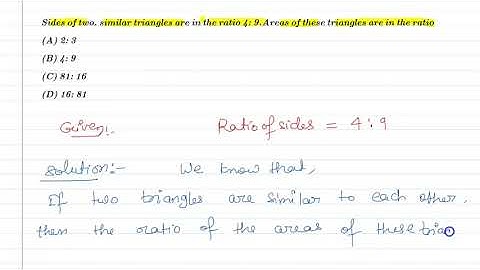 Sides of two. similar triangles are in the ratio 4: 9. Areas of these triangles are in the ratio
(A) 2: 3
(B) 4: 9
(C) 81: 16
(D) 16: 81
Given:- Ratio of sides = 4 : 9
Solution:- We know that,
If two triangles are similar to each other,
then the ratio of the areas of these tria